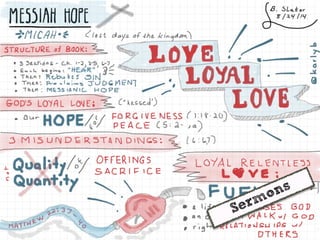 MESSIAH HOPE
B. Slater
8/24/14
MICAH
(last days of the kingdom)
STRUCTURE of BOOK:
3 SECTIONS - Ch. 1-2, 3-5, 6-7
Each begins "HEAR"
Then: Rebukes SIN
Then: Proclaims JUDGMENT
Then: MESSIANIC HOPE
LOVE
LOYAL
LOVE
@karlyb
GOD'S LOYAL LOVE:
("hessed")
Our HOPE
FORGIVENESS (7:18-20)
PEACE (5:2-5a)
3 MISUNDERSTANDINGS:
(6:6-7)
Quality
Quantity
OFFERINGS
SACRIFICE
LOYAL RELENTLESS
LOVE:
FUE
Sermons
MATTHEW 22:37-40
GOD
WALK w/ GOD
RELATIONSHIPS w/
OTHERS